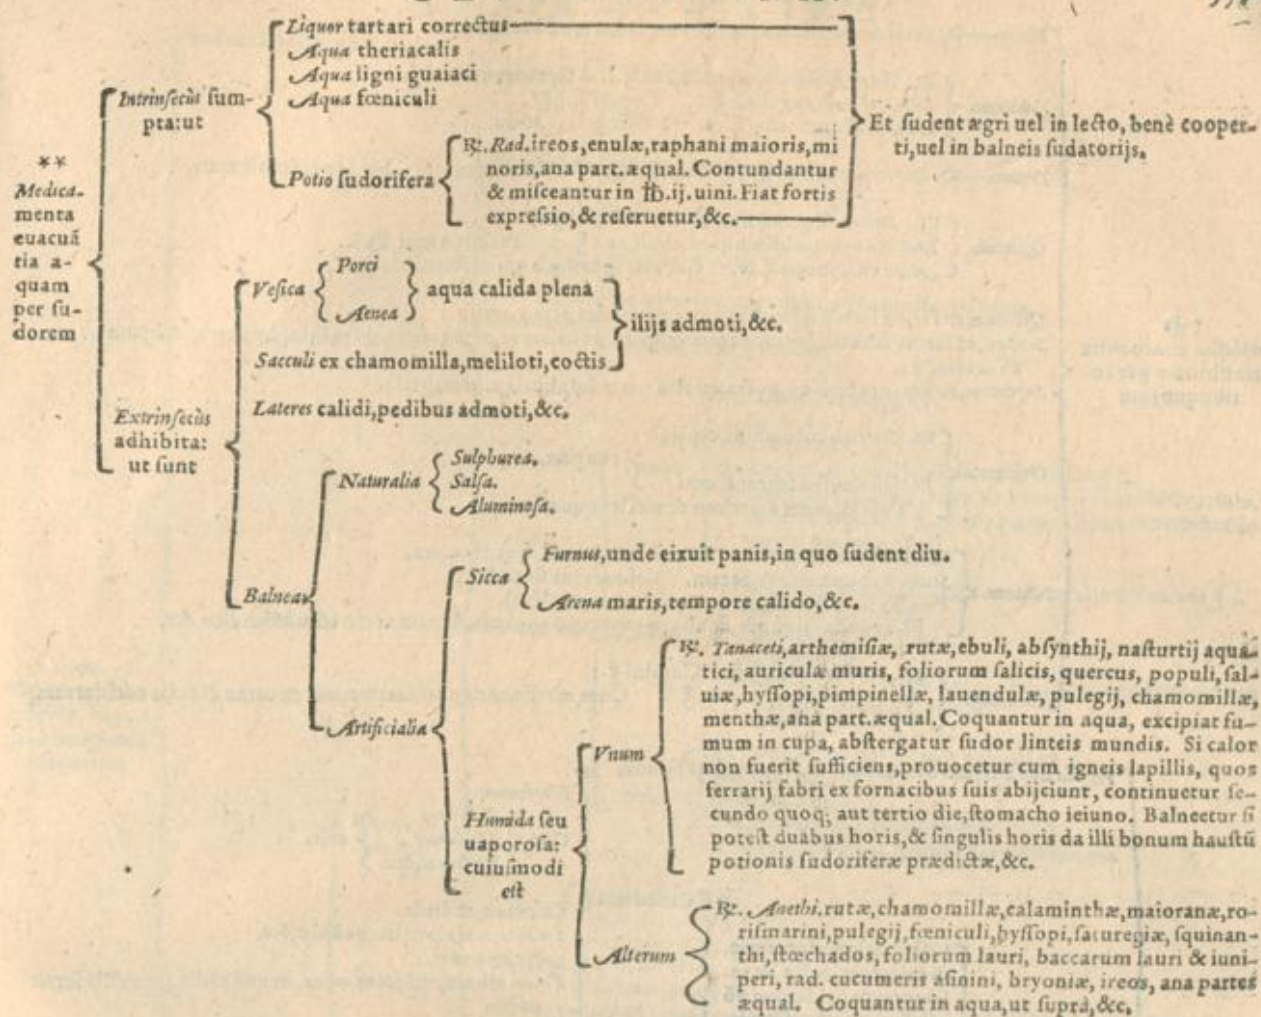 Liquor tartari correctus
Aqua theriacalis
Aqua ligni guaiaci
Aqua fœniculi
Intrinsecùs sum-
pta: ut
Potio sudorifera
℞. Rad. ireos, enulæ, raphani maioris, mi
noris, ana part. æqual. Contundantur
& misceantur in ℔. ij. uini. Fiat fortis
expressio, & reseruetur, &c.
Et sudent ægri uel in lecto, benè cooper-
ti, uel in balneis sudatorijs.
**
Medica-
menta
euacuã
tia a-
quam
per su-
dorem
Vesica
Porci
Aenea
aqua calida plena
ilijs admoti, &c.
Sacculi ex chamomilla, meliloti, coctis
Lateres calidi, pedibus admoti, &c.
Extrinsecùs
adhibita:
ut sunt
Balnea
Naturalia
Sulphurea.
Salsa.
Aluminosa.
Artificialia
Sicca
Furnus, unde eixuit panis, in quo sudent diu.
Arena maris, tempore calido, &c.
Humida seu
uaporosa:
cuiusmodi
est
Vnum
℞. Tanaceti, arthemisiæ, rutæ, ebuli, absynthij, nasturtij aqua-
tici, auriculæ muris, foliorum salicis, quercus, populi, sal-
uiæ, hyssopi, pimpinellæ, lauendulæ, pulegij, chamomillæ,
menthæ, ana part. æqual. Coquantur in aqua, excipiat fu-
mum in cupa, abstergatur sudor linteis mundis. Si calor
non fuerit sufficiens, prouocetur cum igneis lapillis, quos
ferrarij fabri ex fornacibus suis abijciunt, continuetur se-
cundo quoq; aut tertio die, stomacho ieiuno. Balneetur si
potest duabus horis, & singulis horis da illi bonum haustũ
potionis sudoriferæ prædictæ, &c.
Alterum
℞. Anethi, rutæ, chamomillæ, calaminthæ, maioranæ, ro-
rismarini, pulegij, fœniculi, hyssopi, saturegiæ, squinan-
thi, stœchados, foliorum lauri, baccarum lauri & iuni-
peri, rad. cucumeris asinini, bryoniæ, ireos, ana partes
æqual. Coquantur in aqua, ut suprà, &c.